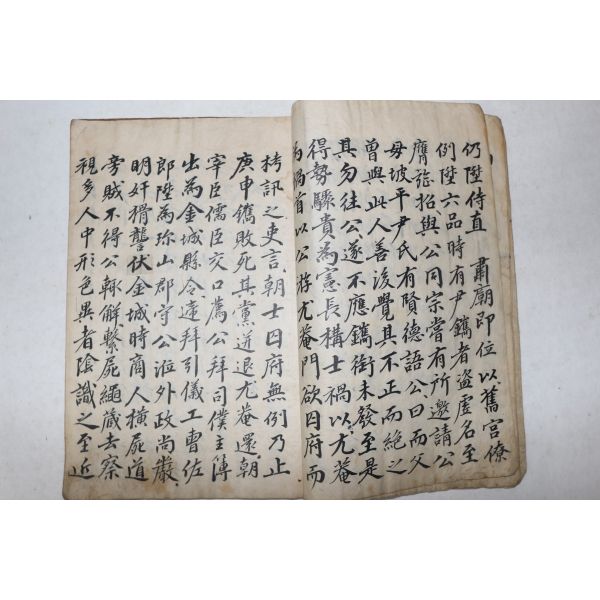 仍陞侍直　肅廟即位以舊宮僚
例陞六品時有尹鑴者盜虛名至
膺旌招與公同宗嘗有所邀請公
毋坡平尹氏有賢德語公曰而父
曾與此人善後覺其不正而絕之
具勿往公遂不應鑴銜未發至是
得勢驟貴為憲長構士禍以尤菴
為禍首以公游尤菴門欲囚府而
栲訊之吏言朝士囚府無例乃止
庚申鑴敗死其黨迸退尤菴還朝
宰臣儒臣交口薦公拜司僕主簿
出為金城縣令遞拜引儀工曹佐
郎陞為珎山郡守公涖外政尚嚴
明奸猾讋伏金城時商人橫屍道
旁賊不得公輒解繫屍繩藏去察
視多人中形色異者陰識之至近